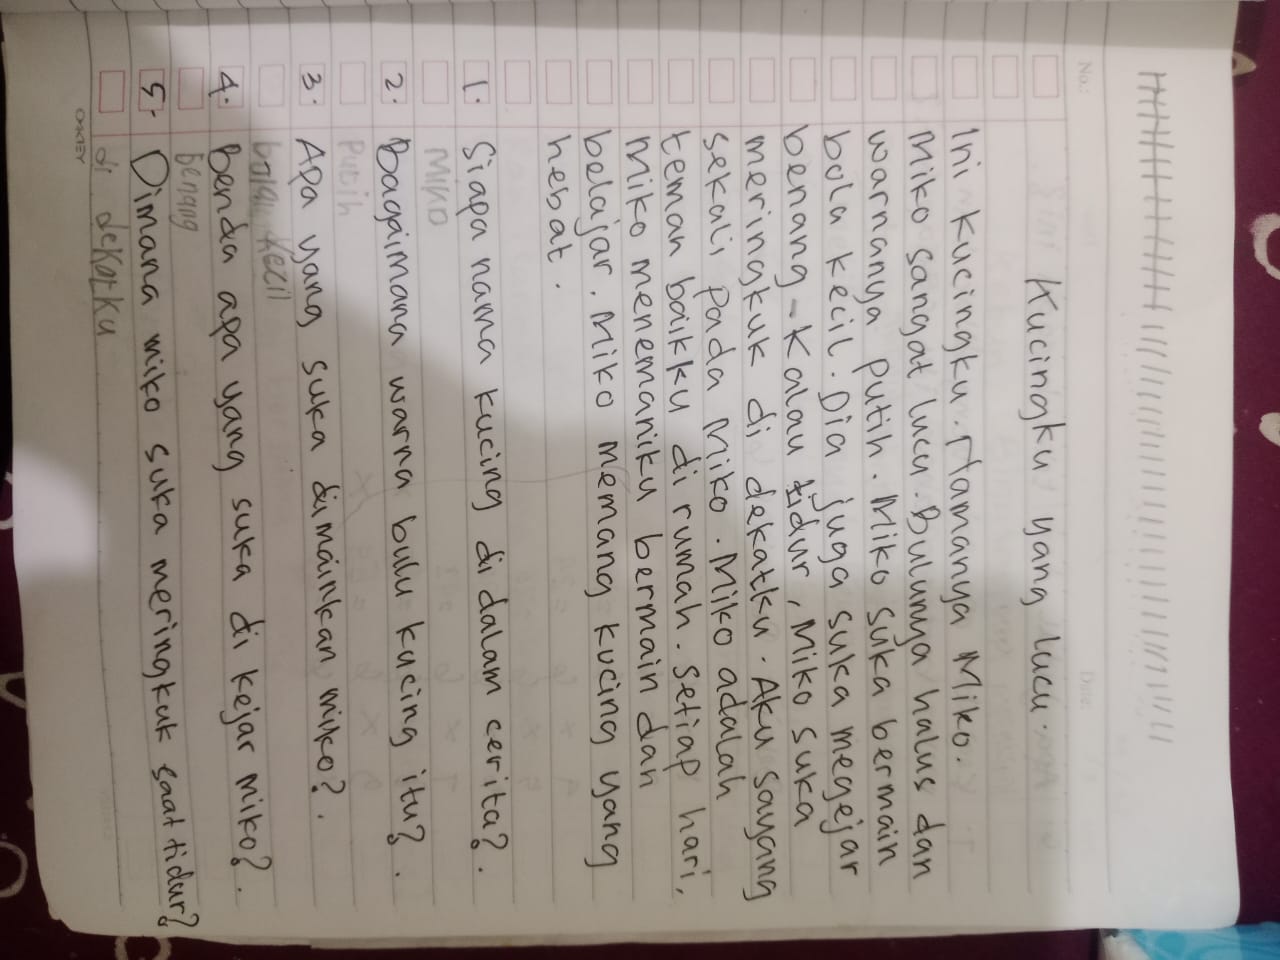 No.:
Date:
Kucingku yang lucu.
Ini kucingku. Namanya Miko.
Miko sangat lucu. Bulunya halus dan
warnanya putih. Miko suka bermain
bola kecil. Dia juga suka megejar
benang - Kalau tidur, Miko suka
meringkuk di dekatku. Aku sayang
sekali pada Miko. Miko adalah
teman baikku di rumah. Setiap hari,
Miko menemaniku bermain dan
belajar. Miko memang kucing yang
hebat.
1. Siapa nama kucing di dalam cerita?.
Miko
2. Bagaimana warna bulu kucing itu?.
Putih
3. Apa yang suka dimainkan miko?.
bola kecil
4. Benda apa yang suka di kejar miko?.
Benang
5. Dimana miko suka meringkuk saat tidur?
di dekatku
OKEY